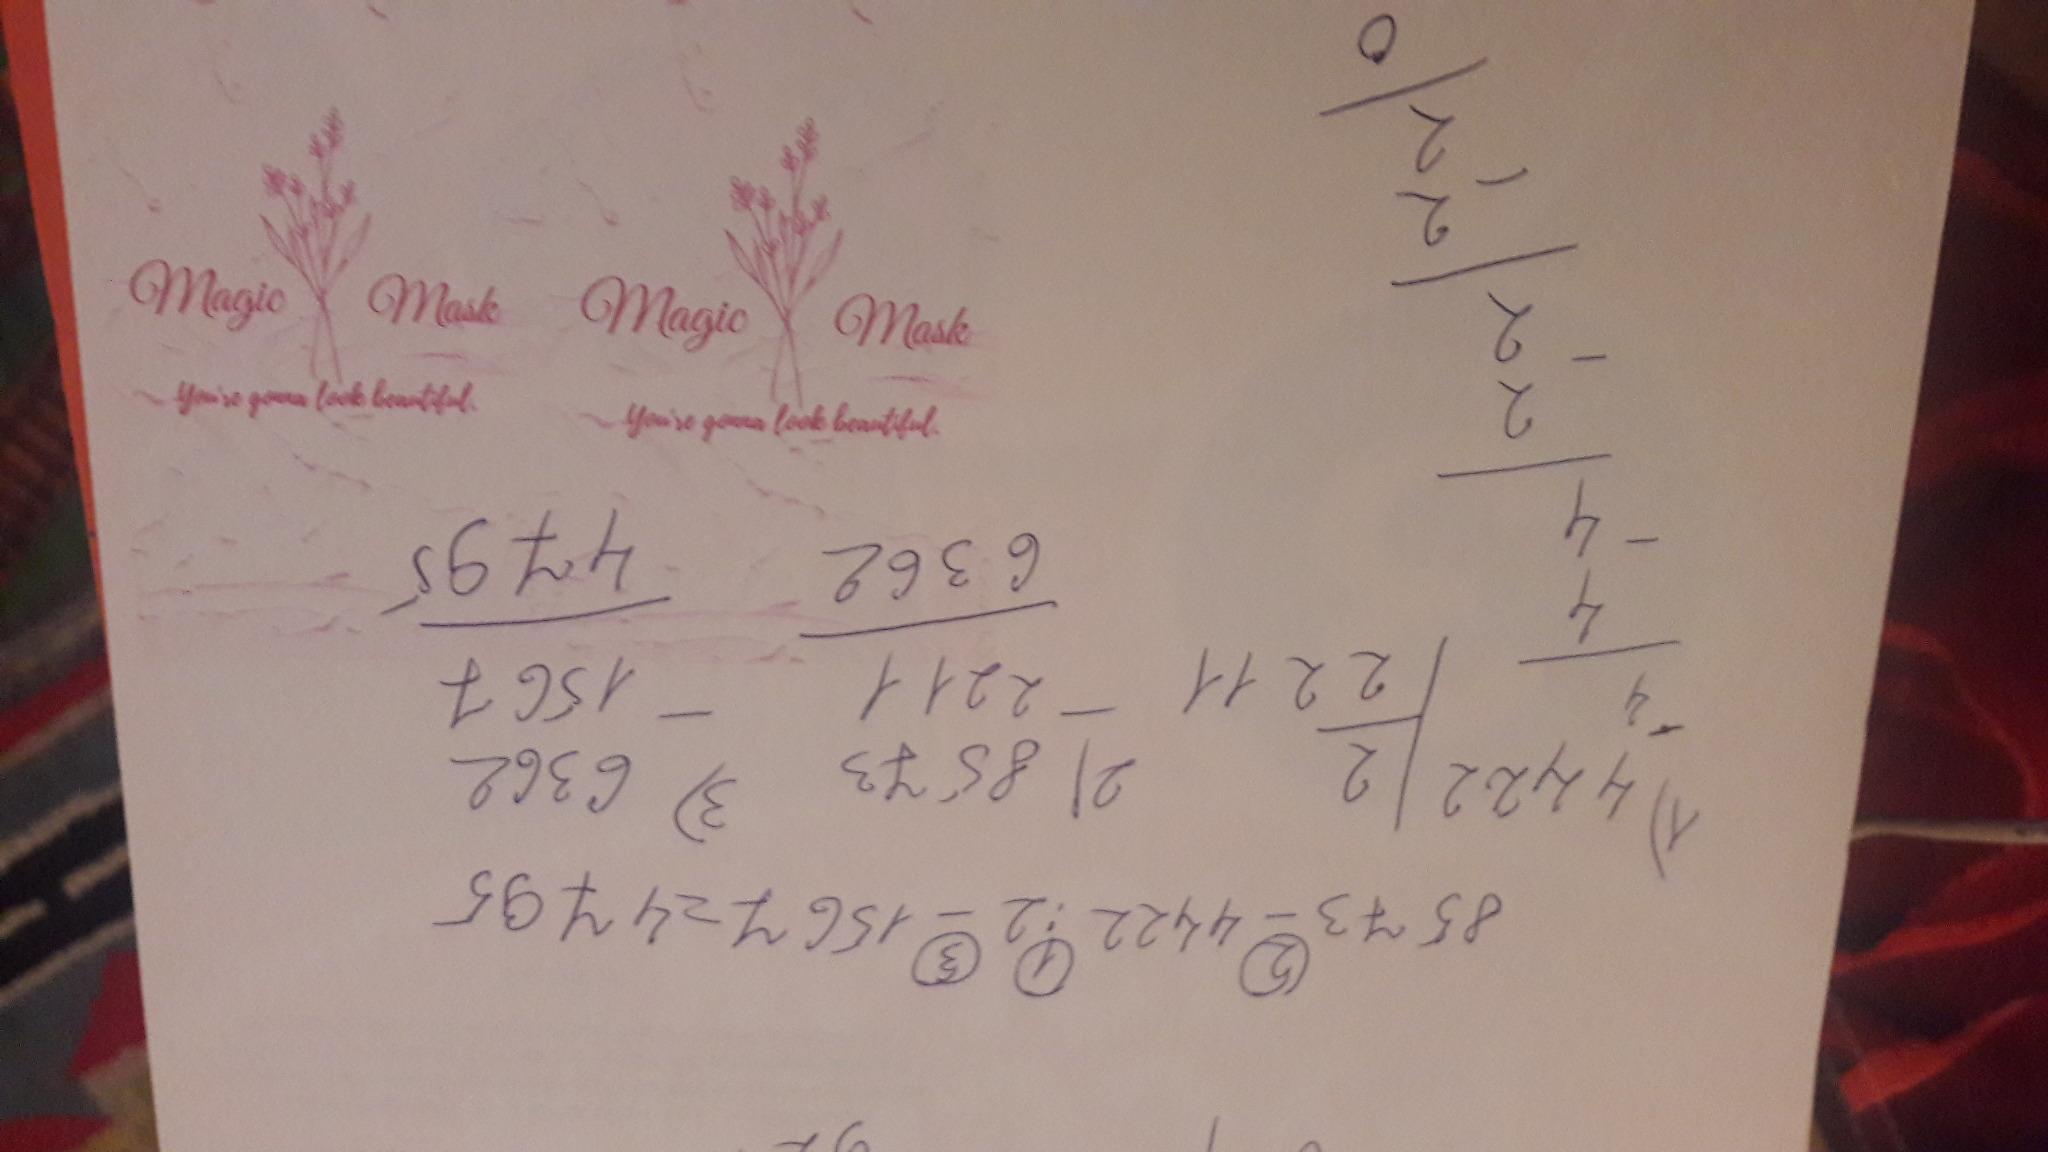 8573-4422:2-1567=4795
2 1 3
1) 4422 | 2
- 4 | 2211
4
- 4
2
- 2
2
- 2
0
2) 8573
- 2211
6362
3) 6362
- 1567
4795
Magic Mask
You're gonna look beautiful.
Magic Mask
You're gonna look beautiful.